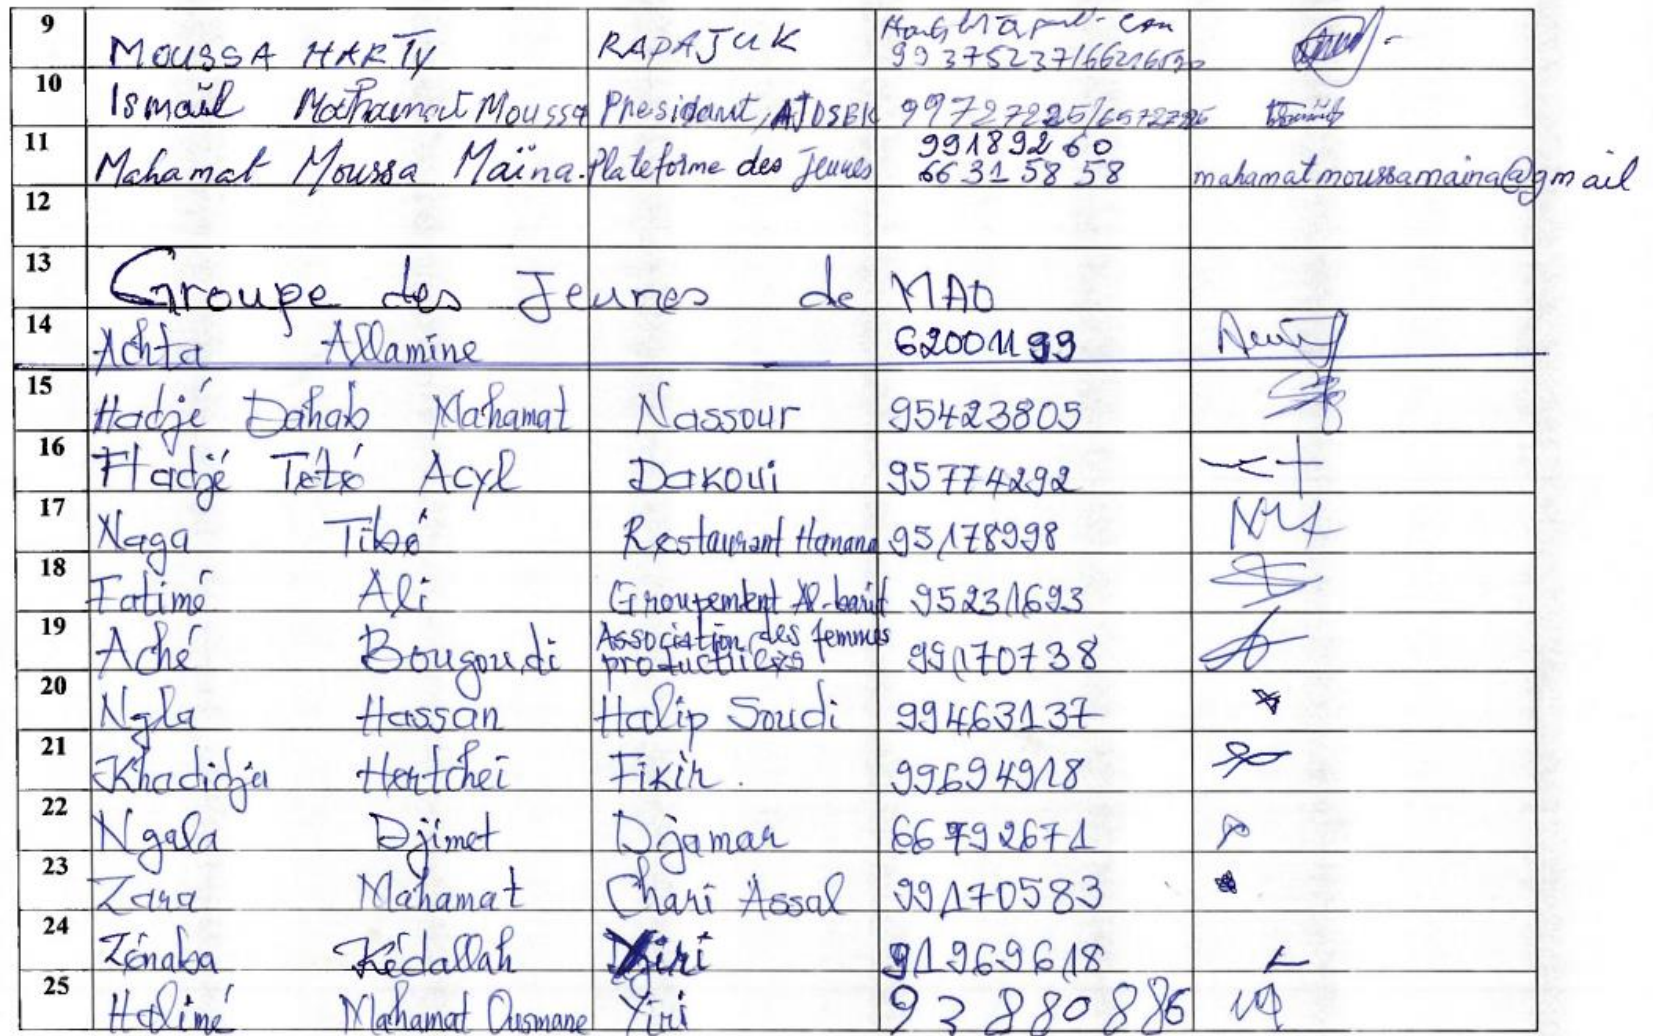 9 MOUSSA HARTY RAPAJUK 99375237/66216590
10 Ismaïl Mahamat Moussa Président, AJOSEK 99727225/
11 Mahamat Moussa Maïna. Plateforme des Jeunes 99189260 66315858 mahamatmoussamaina@gmail
12
13 Groupe des Jeunes de MAO
14 Achta Allamine 62001199
15 Hadjé Dahab Mahamat Nassour 95423805
16 Hadjé Tété Acyl Dakoui 95774292
17 Naga Tibé Restaurant Hanana 95178998
18 Fatimé Ali Groupement 95231693
19 Aché Bougoudi Association des femmes productrices 99170738
20 Ngla Hassan Halip Soudi 99463137
21 Khadidja Hertchei Fikir. 99694918
22 Ngala Djimet Djamar 66792671
23 Zara Mahamat Chari Assal 99170583
24 Zénaba Kédallah Yiri 91969618
25 Halimé Mahamat Ousmane Yiri 93880886